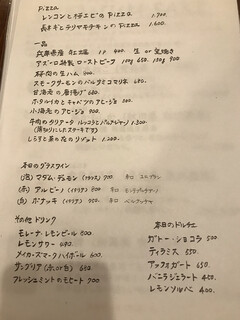 Pizza
レンコンと子持エビのPizza 1.700
長ネギとテリヤキチキンのPizza 1.600
一品
兵庫県産 カキ 1P 400. 生 or 変焼き
アズーロ特製 ローストビーフ 100g 650. 150g 900
豚肉の生ハム 600.
スモークサーモンの バルサミコマリネ 680.
甘海老の唐揚げ 680.
ホタルイカとキャベツのアヒージョ 800
小海老のアヒージョ 900.
牛肉のタリアータ ルッコラとパルメジャーノ 1.300
しらすと菜の花のリゾット 1.200.
本日のグラスワイン
(泡) マダム・デュモン (フランス) 700 辛口
(赤) アルビーノ (イタリア) 800 辛口 モンテプルチアーノ
(白) ボナッチ (イタリア) 750 辛口
その他ドリンク
モレーナ レモンビール 600
レモンサワー 600.
メイカーズマークハイボール 600.
サングリア (赤.or白) 600
フレッシュミントのモヒート 700
本日のドルチェ
ガトー・ショコラ 500
ティラミス 550
アッフォガート 650.
バニラジェラート 400.
レモンソルベ 400.